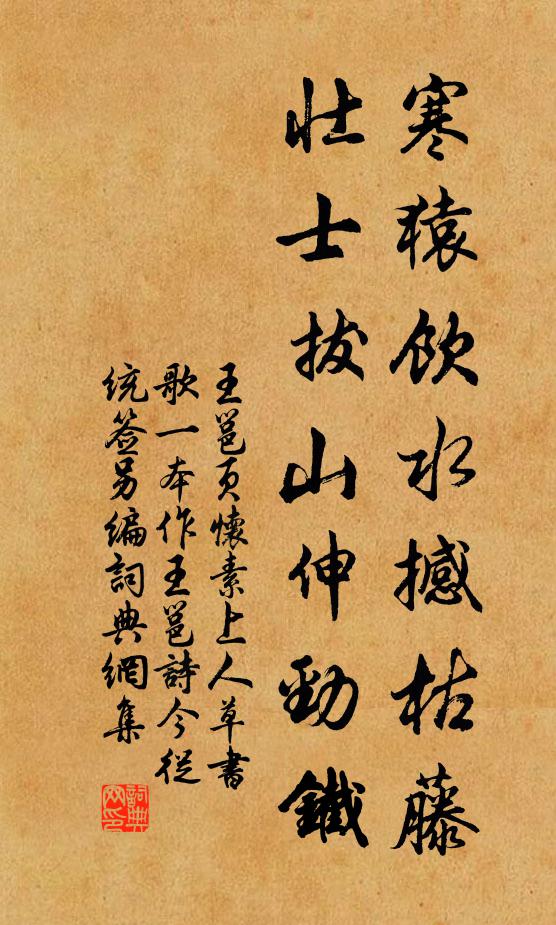 寒猿飲水撼枯藤
壯士拔山伸勁鐵
王邕頁懷素上人草書
歌一本作王邕詩今從
統签另编詞典網集
詞典網印